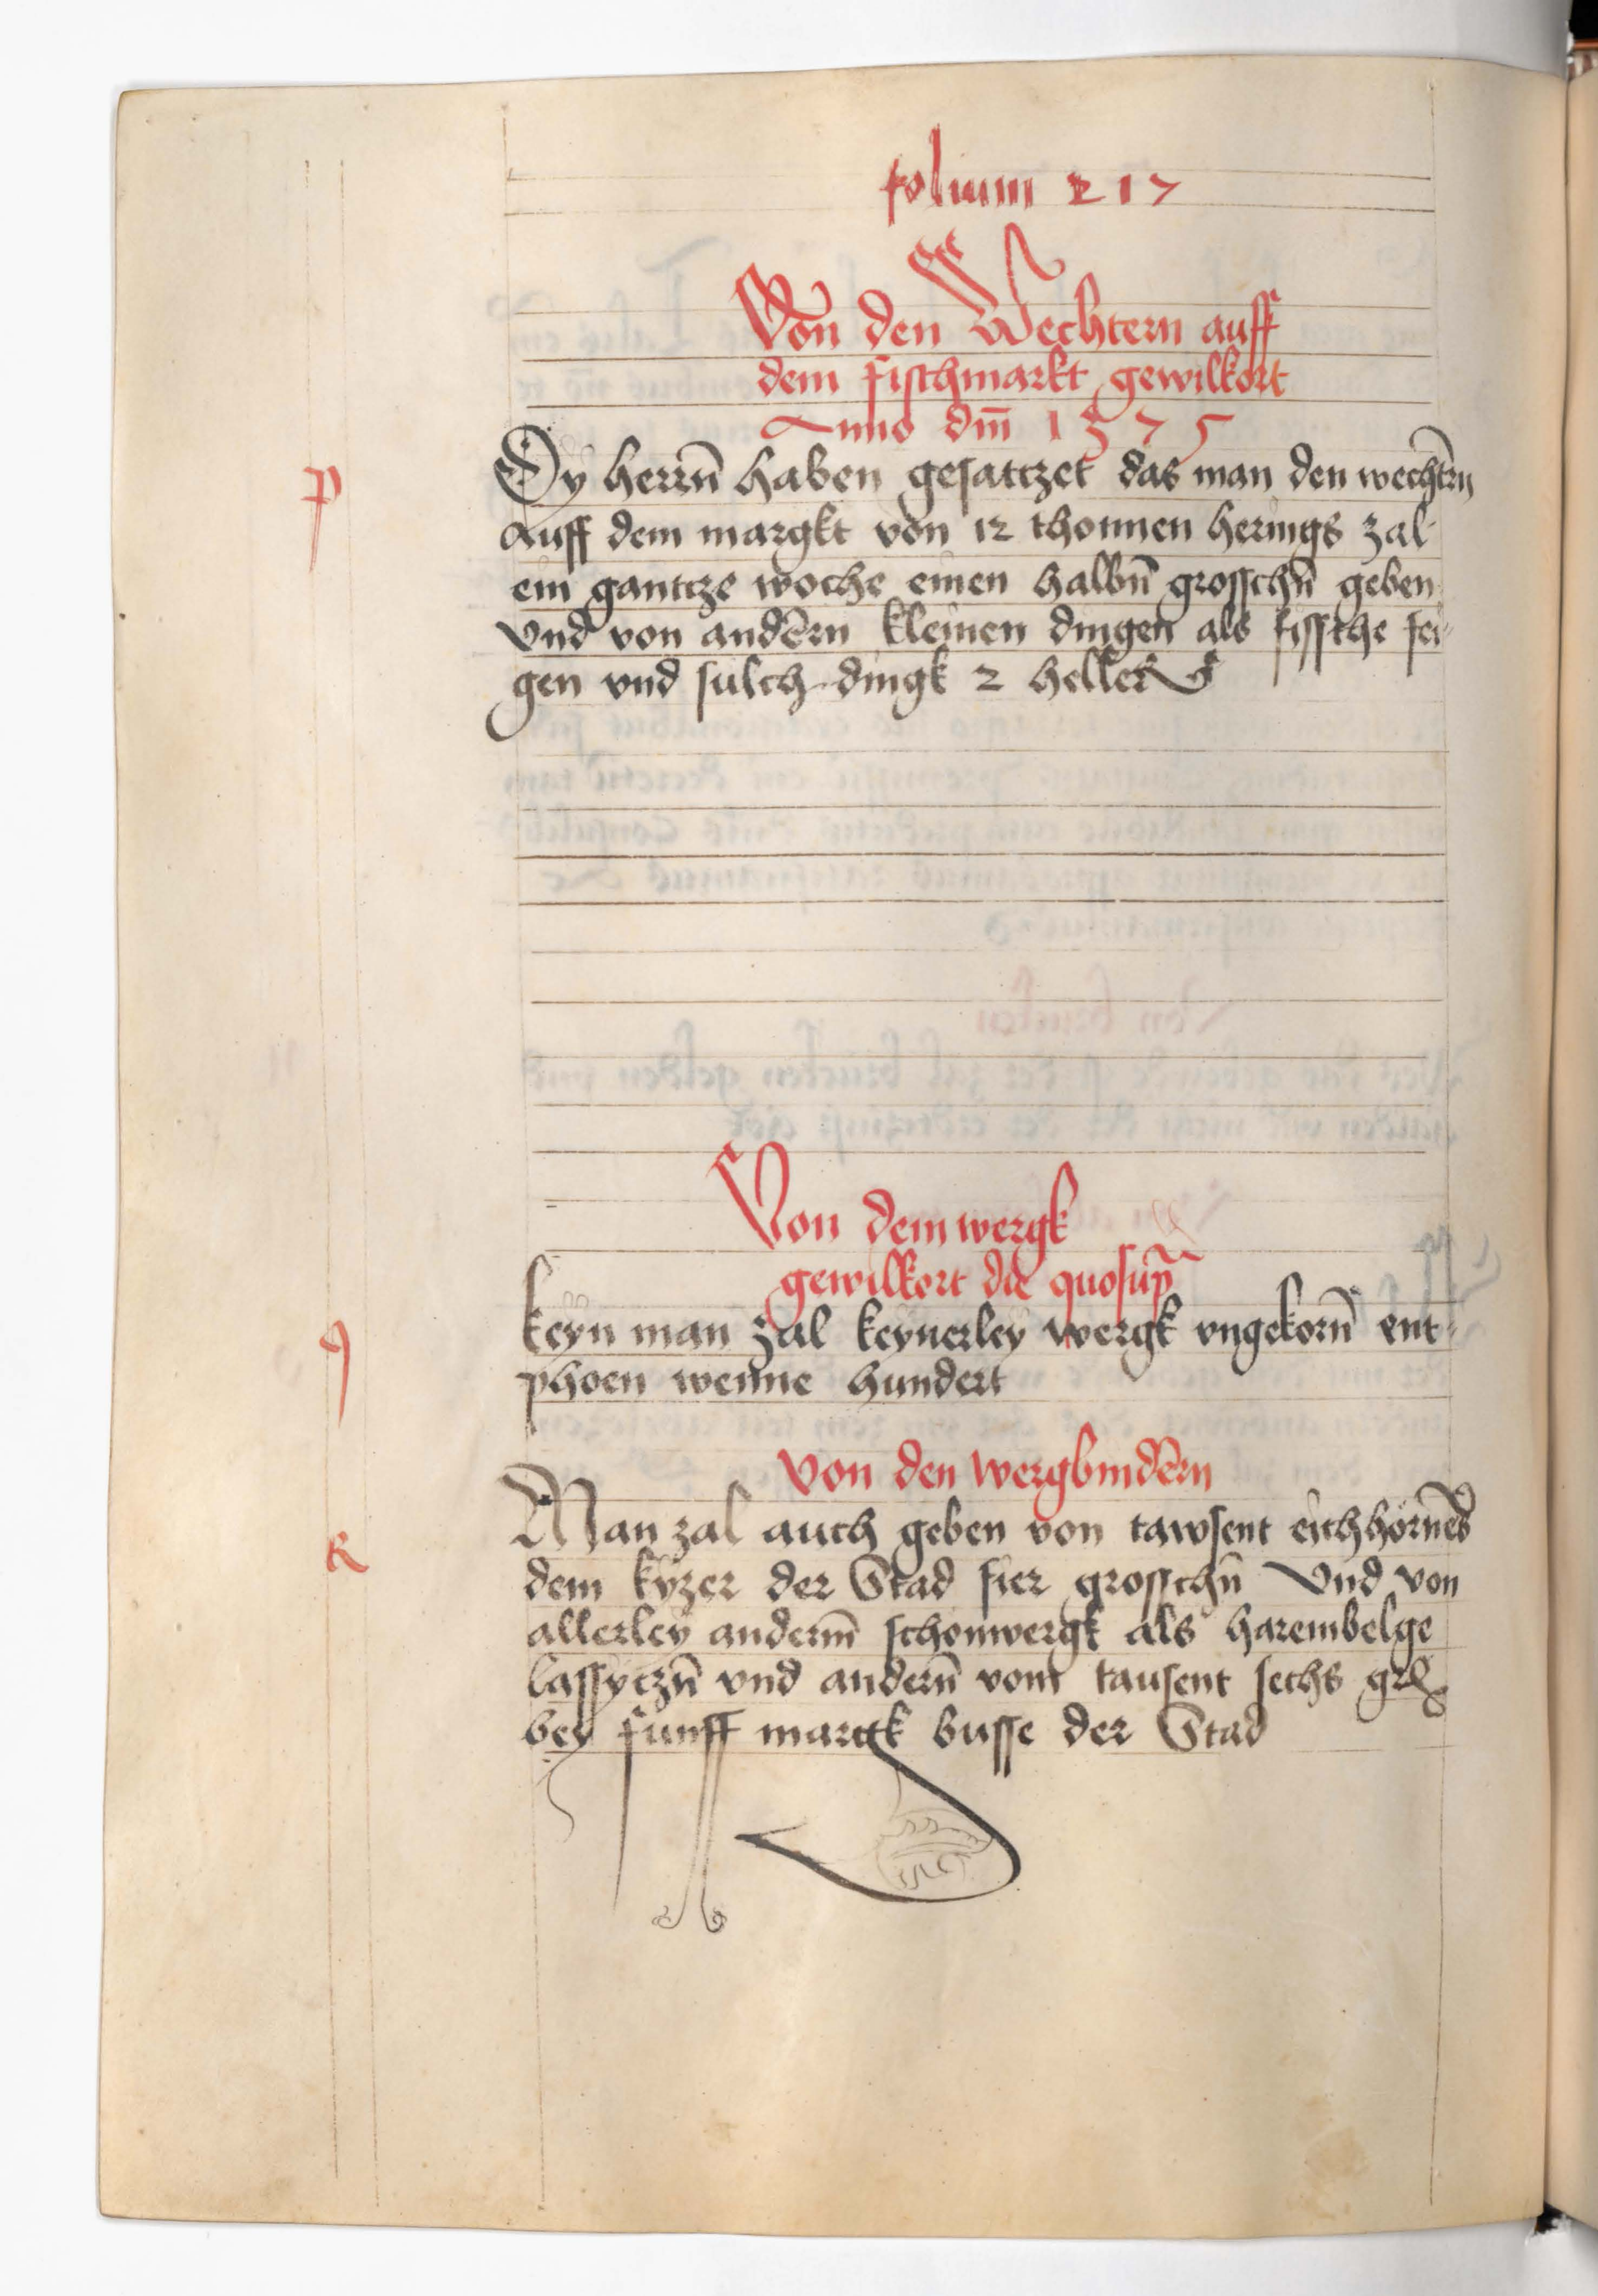 folium 217
Von den Wechtern auff
dem fischmarkt gewilkort
Anno dm̄ 1375
p
Dy herrn̄ haben gesatczet das man den wechtrn̄
auff dem margkt von 12 thonnen herings zal
ein gantcze woche einen halbn̄ grosschn̄ geben
vnd von andērn kleinen dingen als fissche fei-
gen vnd sulch dingk 2 heller
Von dem wergk
gewilkort die quo sup̄
q
keyn man zal keynerley wergk vngekorn̄ ent-
phoen wenne hundert
von den wergbindērn
R
Man zal auch geben von tawsent eichhornes
dem kyzer der Stad fier grosschn̄ Vnd von
allerley anderm̄ schonwergk als harembelge
lassyczn̄ vnd andern̄ vom tausent sechs gr
bey funff margk busse der Stad